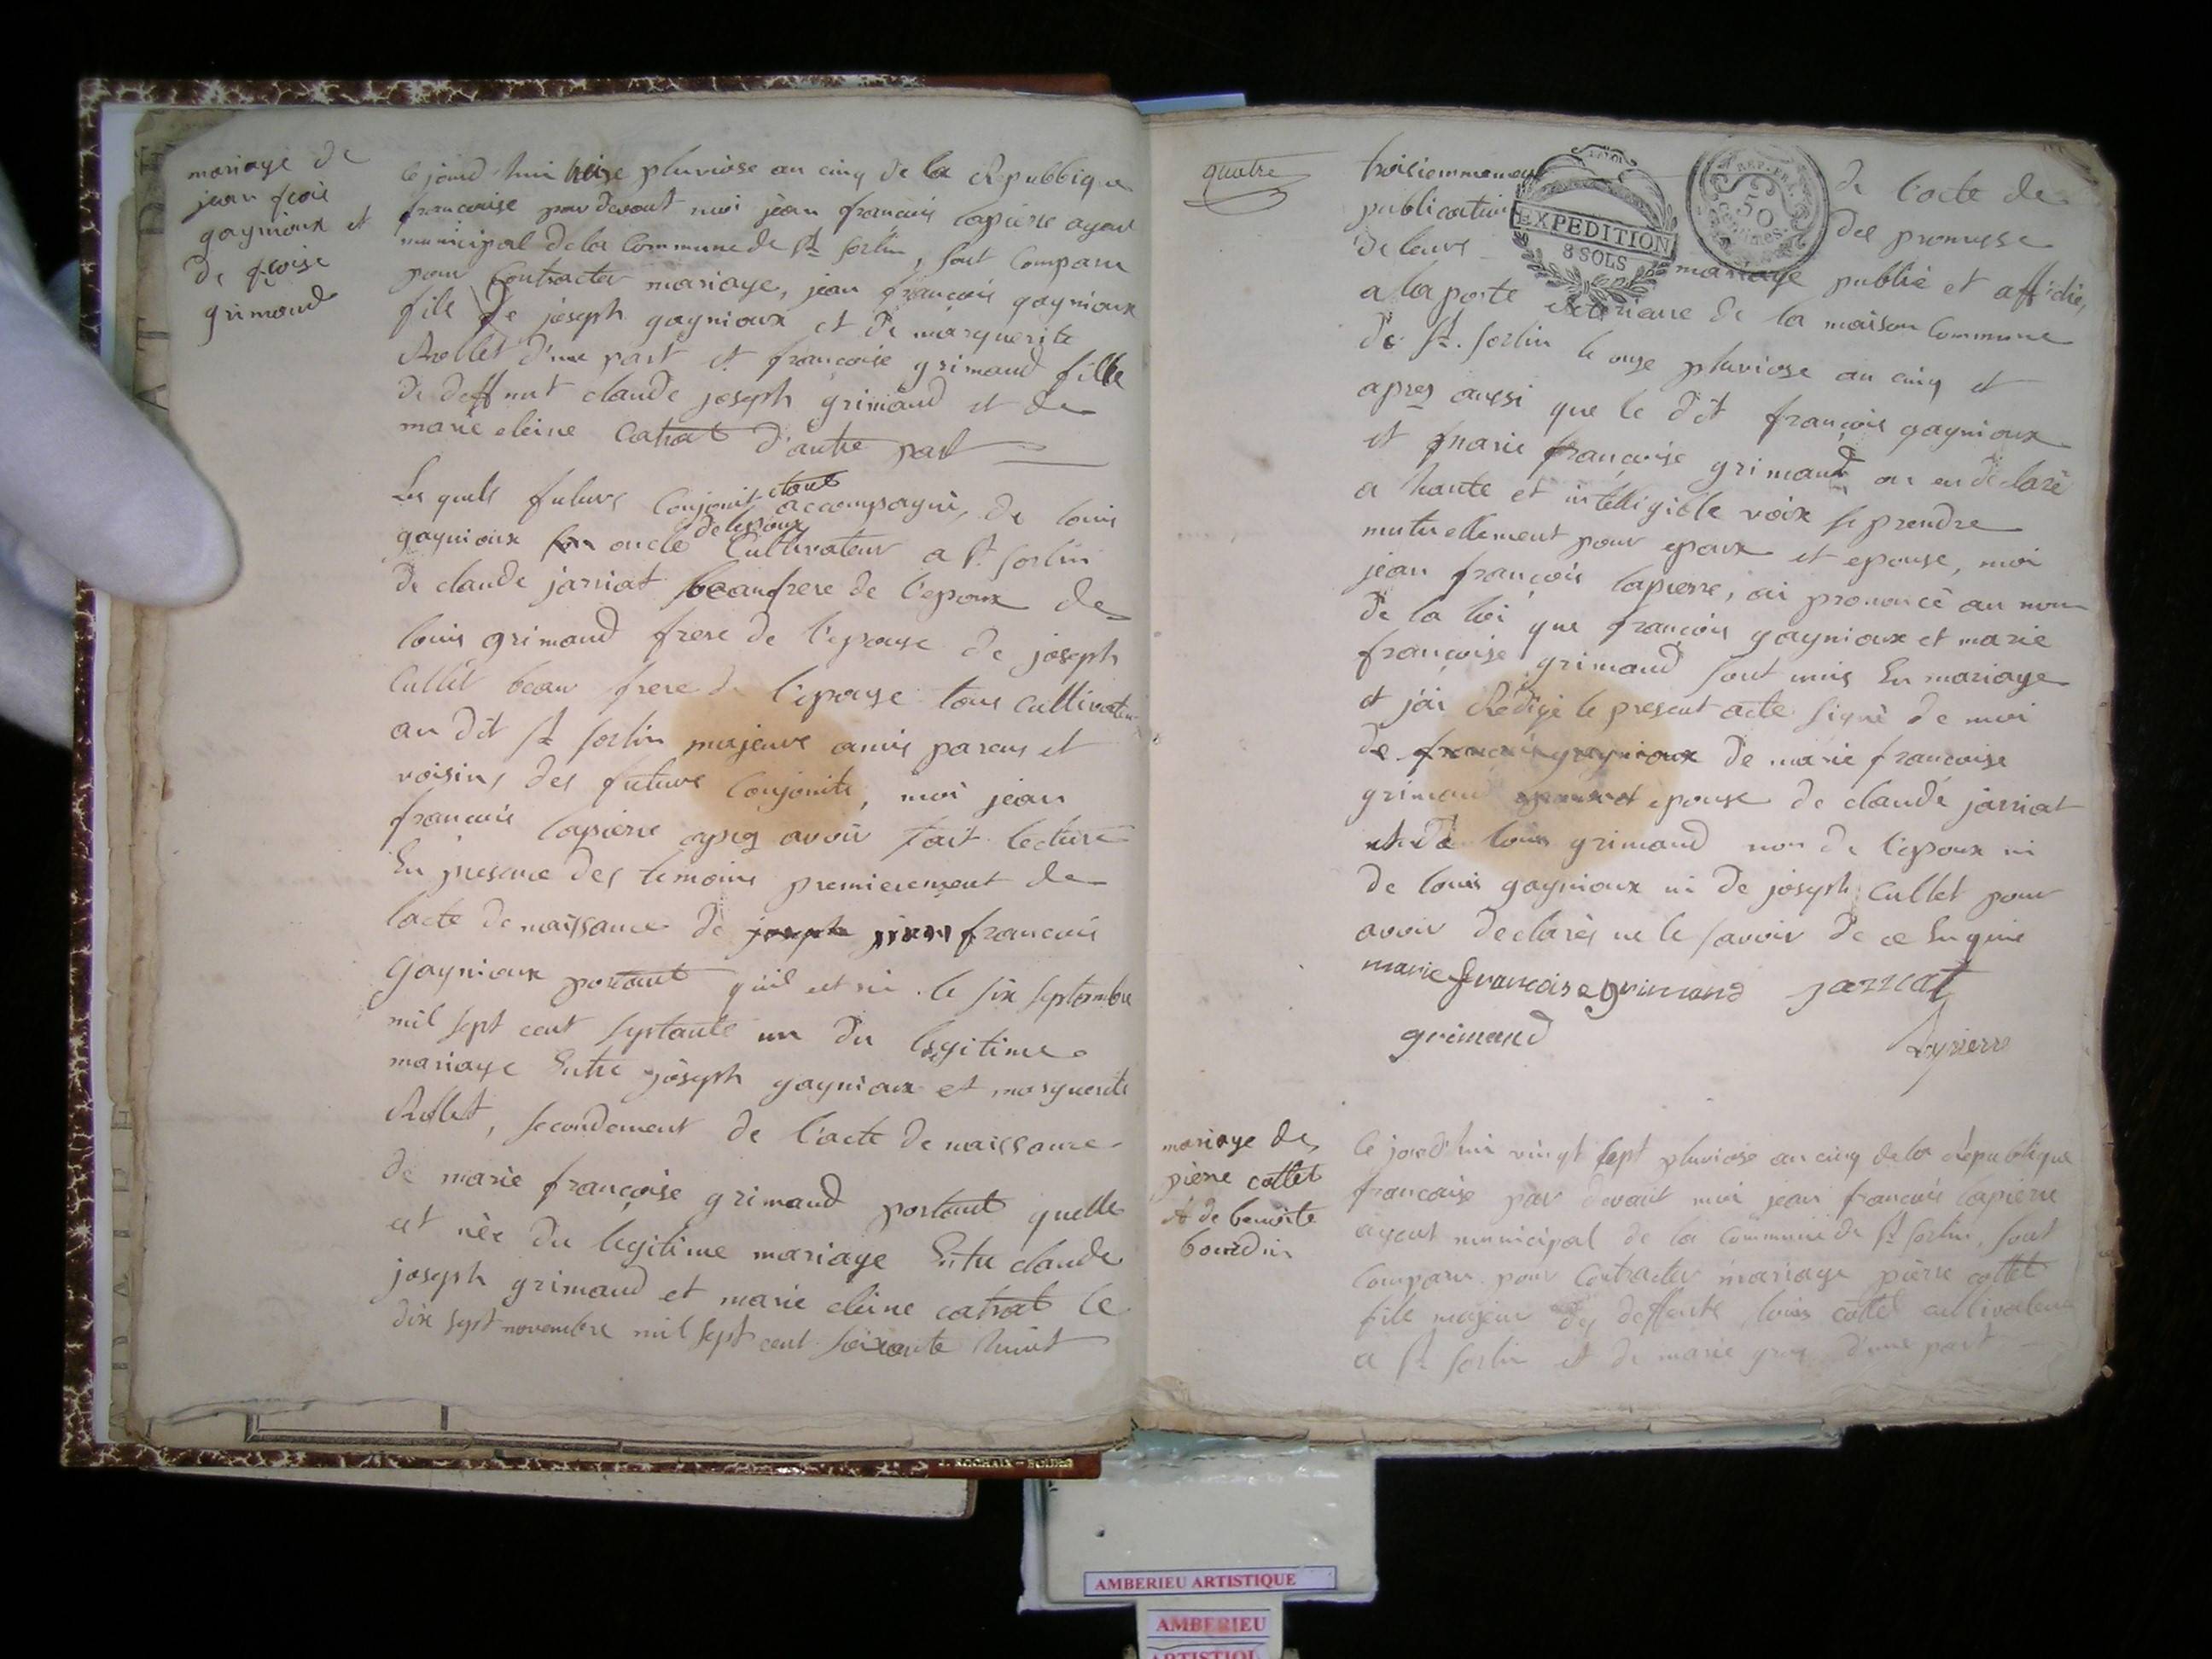 mariage de
jean fcois
gaynioux et
de fcoise
grimaud
Cejourd'hui seize pluviose an cinq de la Republique
francaise par devant moi jean francois lapierre agent
municipal de la Commune de St Sorlin, sont Comparu
pour Contracter mariage, jean francois gaynioux
fils de joseph gaynioux et de marguerite
Rollet d'une part et francoise grimaud fille
de deffunt claude joseph grimaud et de
marie eleine Catrat d'autre part
Les quels futurs Conjoint etant accompagné, de louis
gaynioux oncle de lepoux Cultivateur a St Sorlin
de claude jarriat beaufrere de l'epoux de
louis grimaud frere de l'epouse de joseph
Cullet beau frere de l'epouse tous cultivateur
au dit St Sorlin majeurs amis parens et
voisins des futurs Conjoints, moi jean
francois lapierre apres avoir fait lecture
En presence des temoins premierement de
lacte de naissance de joseph jean francois
gaynioux portant quil est né le six septembre
mil sept cent septante un du legitime
mariage Entre joseph gaynioux et marguerite
Rollet, secondement de l'acte de naissance
de marie françoise grimaud portant quelle
est née du legitime mariage Entre claude
joseph grimaud et marie eleine catrat le
dix sept novembre mil sept cent soixante huit
quatre
troisiemement de l'acte de
publication des promesse
de leurs mariage publié et affiché,
EXPEDITION
8 SOLS
REP. FRA.
50
Centimes.
a la porte exterieure de la maison Commune
de St. Sorlin le onze pluviose an cinq et
apres aussi que le dit françois gaynioux
et marie françoise grimaud on eu declaré
a haute et intelligible voix se prendre
mutuellement pour epoux et epouse, moi
jean françois lapierre, ai prononcé au nom
de la loi que françois gaynioux et marie
françoise grimaud sont unis En mariage
et j'ai Redigé le present acte signé de moi
de francois gaynioux de marie francoise
grimaud epouse de claude jarriat
et de louis grimaud non de l'epoux ni
de louis gaynioux ni de joseph Cullet pour
avoir declarés ne le savoir de ce Enquis
marie francoise grimaud jarriat
grimaud Lapierre
mariage de
pierre collet
et de benoite
bourdin
Cejourd'hui vingt sept pluviose an cinq de la republique
francaise par devant moi jean francois lapierre
agent municipal de la Commune de St Sorlin, sont
Comparu pour Contracter mariage pierre collet
fils majeur des deffunts louis collet cultivateur
a St Sorlin et de marie gros d'une part
J. ROCHAIX-BOIDES
AMBERIEU ARTISTIQUE
AMBERIEU
ARTISTIQUE